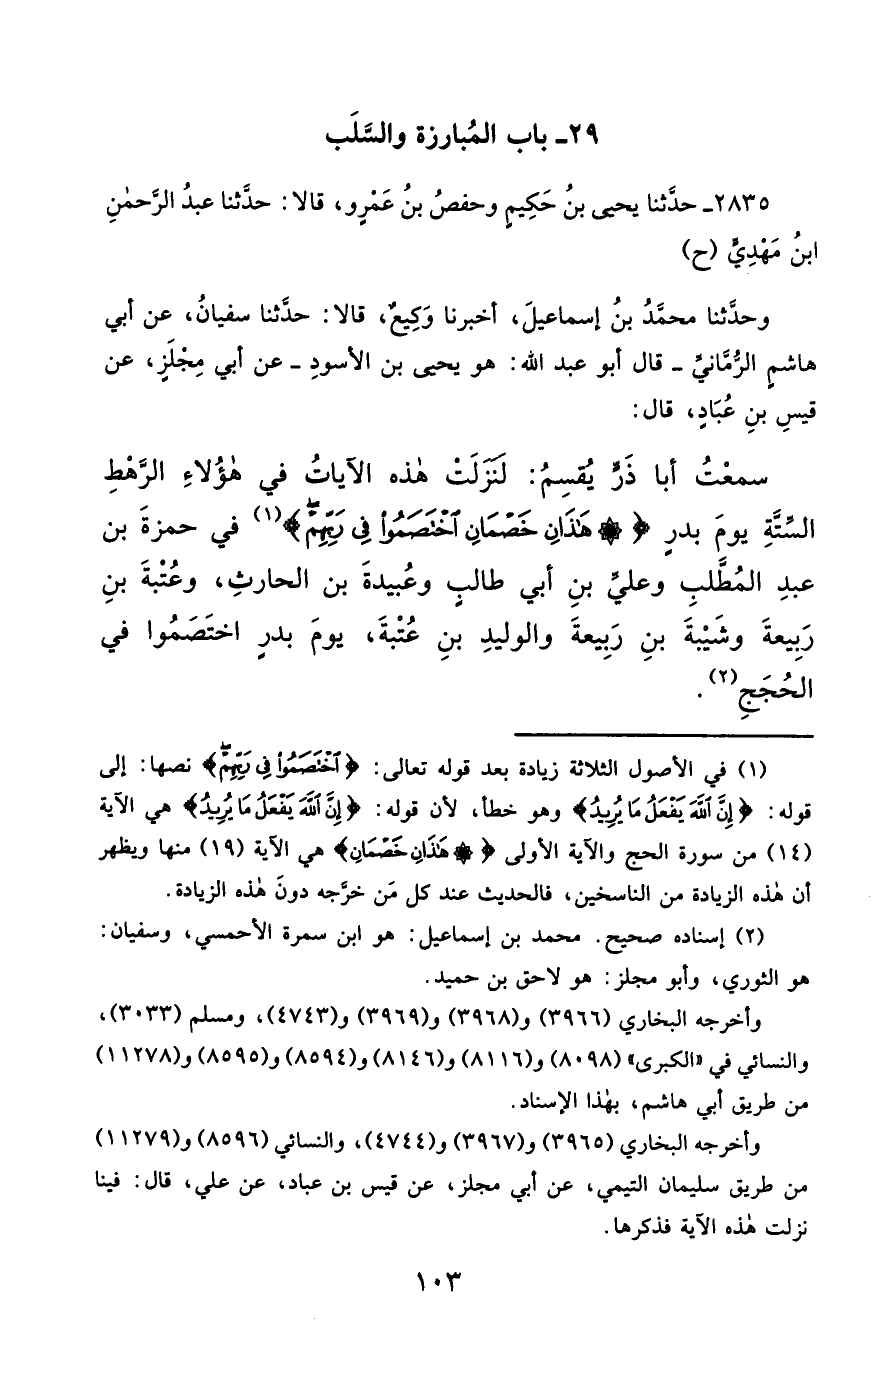 ٢٩ـ باب المُبارزة والسَّلَب
٢٨٣٥ـ حدَّثنا يحيى بنُ حَكِيمٍ وحفصُ بنُ عَمْرٍو، قالا: حدَّثنا عبدُ الرَّحمٰنِ
ابنُ مَهْدِيٍّ (ح)
وحدَّثنا محمَّدُ بنُ إسماعيلَ، أخبرنا وَكِيعٌ، قالا: حدَّثنا سفيانُ، عن أبي
هاشمٍ الرُّمَّانيِّ ـ قال أبو عبد الله: هو يحيى بن الأسودِ ـ عن أبي مِجْلَزٍ، عن
قيسِ بنِ عُبَادٍ، قال:
سمعْتُ أبا ذَرٍّ يُقسِمُ: لَنَزَلَتْ هٰذه الآياتُ في هٰؤُلاءِ الرَّهْطِ
السِّتَّةِ يومَ بدرٍ ﴿ ۞ هَٰذَانِ خَصْمَانِ ٱخْتَصَمُوا۟ فِى رَبِّهِمْ ۖ﴾(١) في حمزةَ بن
عبدِ المُطَّلبِ وعليِّ بنِ أبي طالبٍ وعُبيدةَ بن الحارثِ، وعُتْبةَ بنِ
رَبِيعةَ وشَيْبةَ بنِ رَبِيعةَ والوليدِ بنِ عُتْبةَ، يومَ بدرٍ اختَصَمُوا في
الحُجَجِ(٢).
(١) في الأصول الثلاثة زيادة بعد قوله تعالى: ﴿ٱخْتَصَمُوا۟ فِى رَبِّهِمْ ۖ﴾ نصها: إلى
قوله: ﴿إِنَّ ٱللَّهَ يَفْعَلُ مَا يُرِيدُ﴾ وهو خطأ، لأن قوله: ﴿إِنَّ ٱللَّهَ يَفْعَلُ مَا يُرِيدُ﴾ هي الآية
(١٤) من سورة الحج والآية الأولى ﴿ ۞ هَٰذَانِ خَصْمَانِ﴾ هي الآية (١٩) منها ويظهر
أن هٰذه الزيادة من الناسخين، فالحديث عند كل مَن خرَّجه دونَ هٰذه الزيادة.
(٢) إسناده صحيح. محمد بن إسماعيل: هو ابن سمرة الأحمسي، وسفيان:
هو الثوري، وأبو مجلز: هو لاحق بن حميد.
وأخرجه البخاري (٣٩٦٦) و(٣٩٦٨) و(٣٩٦٩) و(٤٧٤٣)، ومسلم (٣٠٣٣)،
والنسائي في «الكبرى» (٨٠٩٨) و(٨١١٦) و(٨١٤٦) و(٨٥٩٤) و(٨٥٩٥) و(١١٢٧٨)
من طريق أبي هاشم، بهٰذا الإسناد.
وأخرجه البخاري (٣٩٦٥) و(٣٩٦٧) و(٤٧٤٤)، والنسائي (٨٥٩٦) و(١١٢٧٩)
من طريق سليمان التيمي، عن أبي مجلز، عن قيس بن عباد، عن علي، قال: فينا
نزلت هٰذه الآية فذكرها.
١٠٣